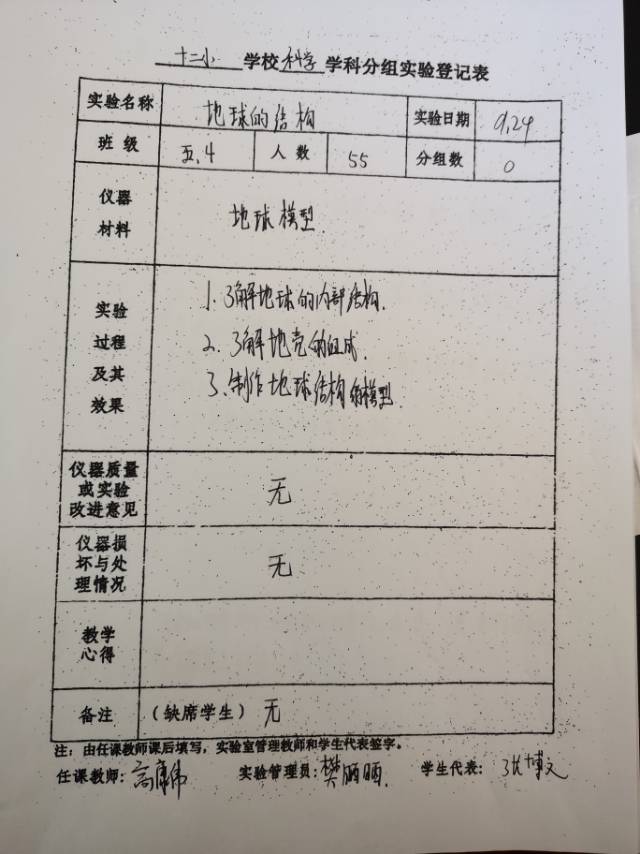 十二小 学校 科学 学科分组实验登记表
实验名称 地球的结构 实验日期 9.24
班级 五.4 人数 55 分组数 0
仪器
材料
地球模型
实验
过程
及其
效果
1. 了解地球的内部结构.
2. 了解地壳的组成.
3. 制作地球结构的模型.
仪器质量
或实验
改进意见
无
仪器损
坏与处
理情况
无
教学
心得
备注 (缺席学生) 无
注：由任课教师课后填写，实验室管理教师和学生代表签字。
任课教师：高康伟 实验管理员：樊丽丽 学生代表：张博文